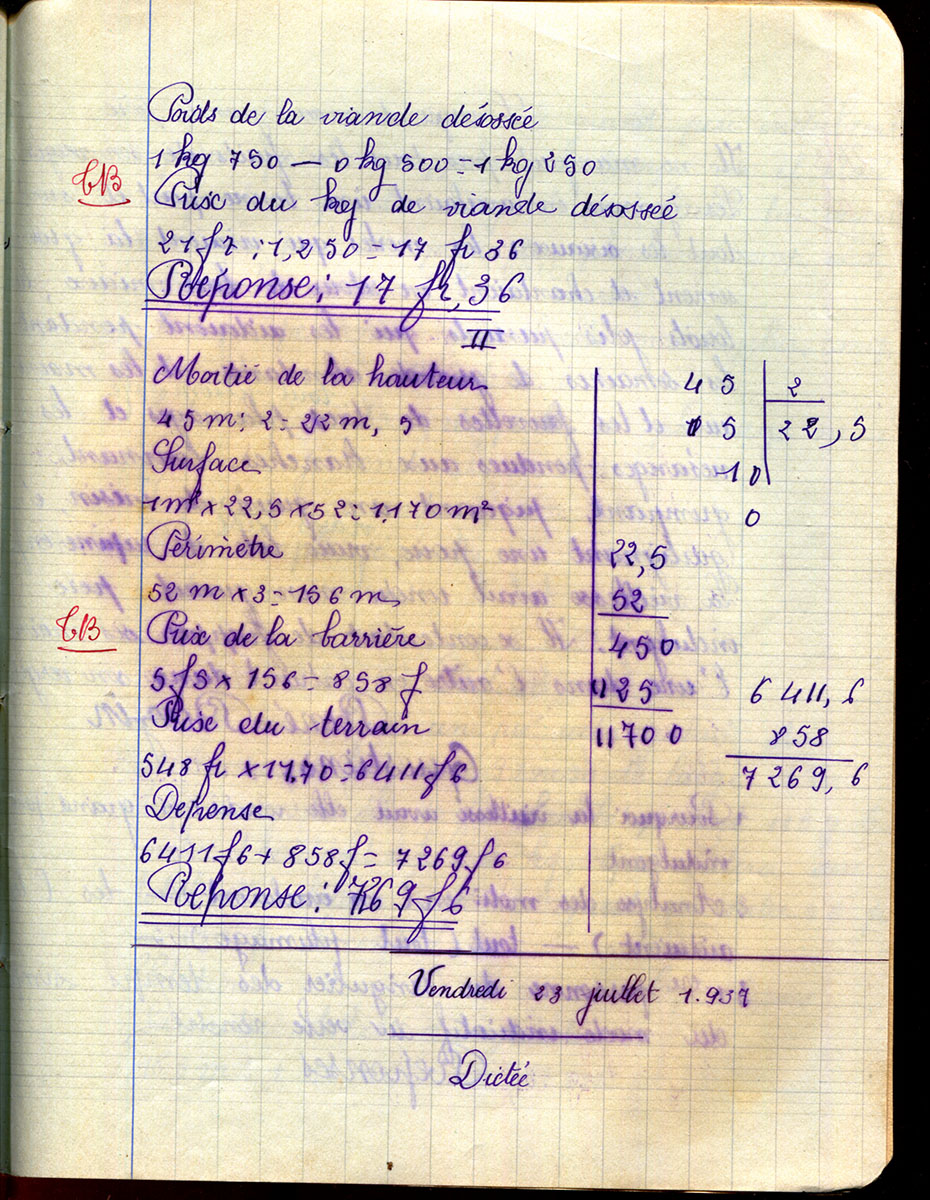 Poids de la viande désossée
1 kg 750 — 0 kg 500 = 1 kg 250
TB
Prix du kg de viande désossée
21 f 7 : 1,250 = 17 fr 36
Réponse : 17 fr, 36
II
Moitié de la hauteur
45 m : 2 = 22 m, 5
Surface
1 m² × 22,5 × 52 = 1,170 m²
Périmètre
52 m × 3 = 156 m
TB
Prix de la barrière
5 f 5 × 156 = 858 f
Prix du terrain
548 fr × 11,70 = 6411 f 6
Dépense
6411 f 6 + 858 f = 7269 f 6
Réponse : 7269 f 6
45 2
05 22,5
10
0
22,5
52
450
1125
11700
6411,6
858
7269,6
Vendredi 23 juillet 1.937
Dictée